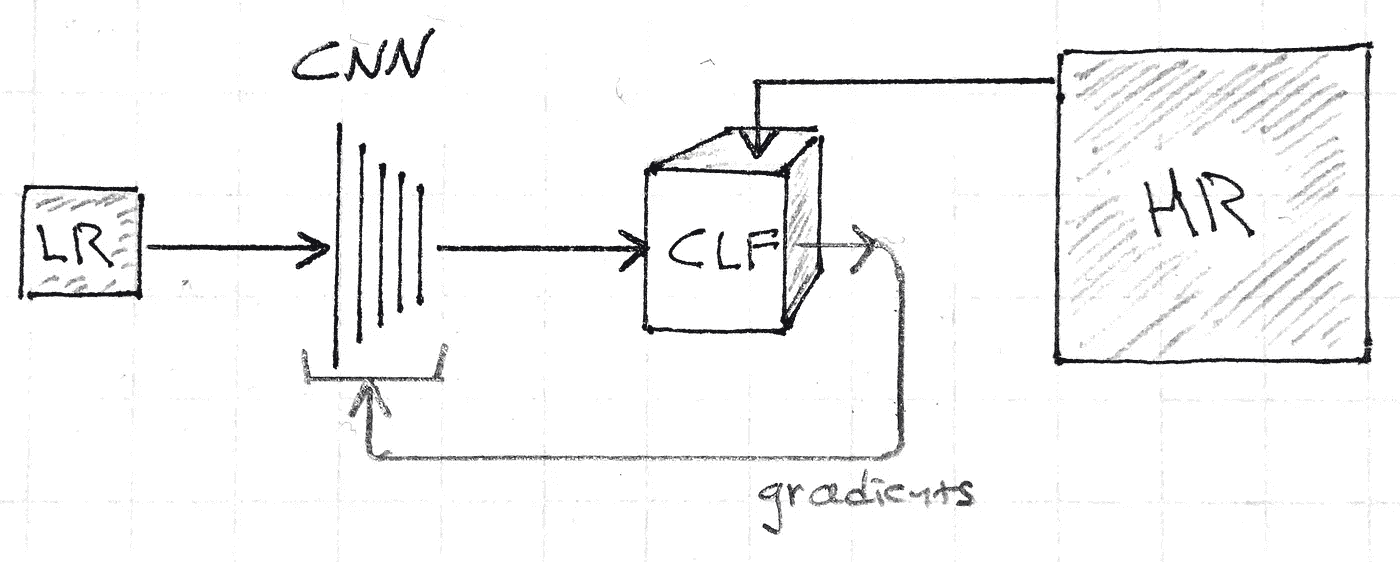 CNN
LR
CLF
HR
gradients